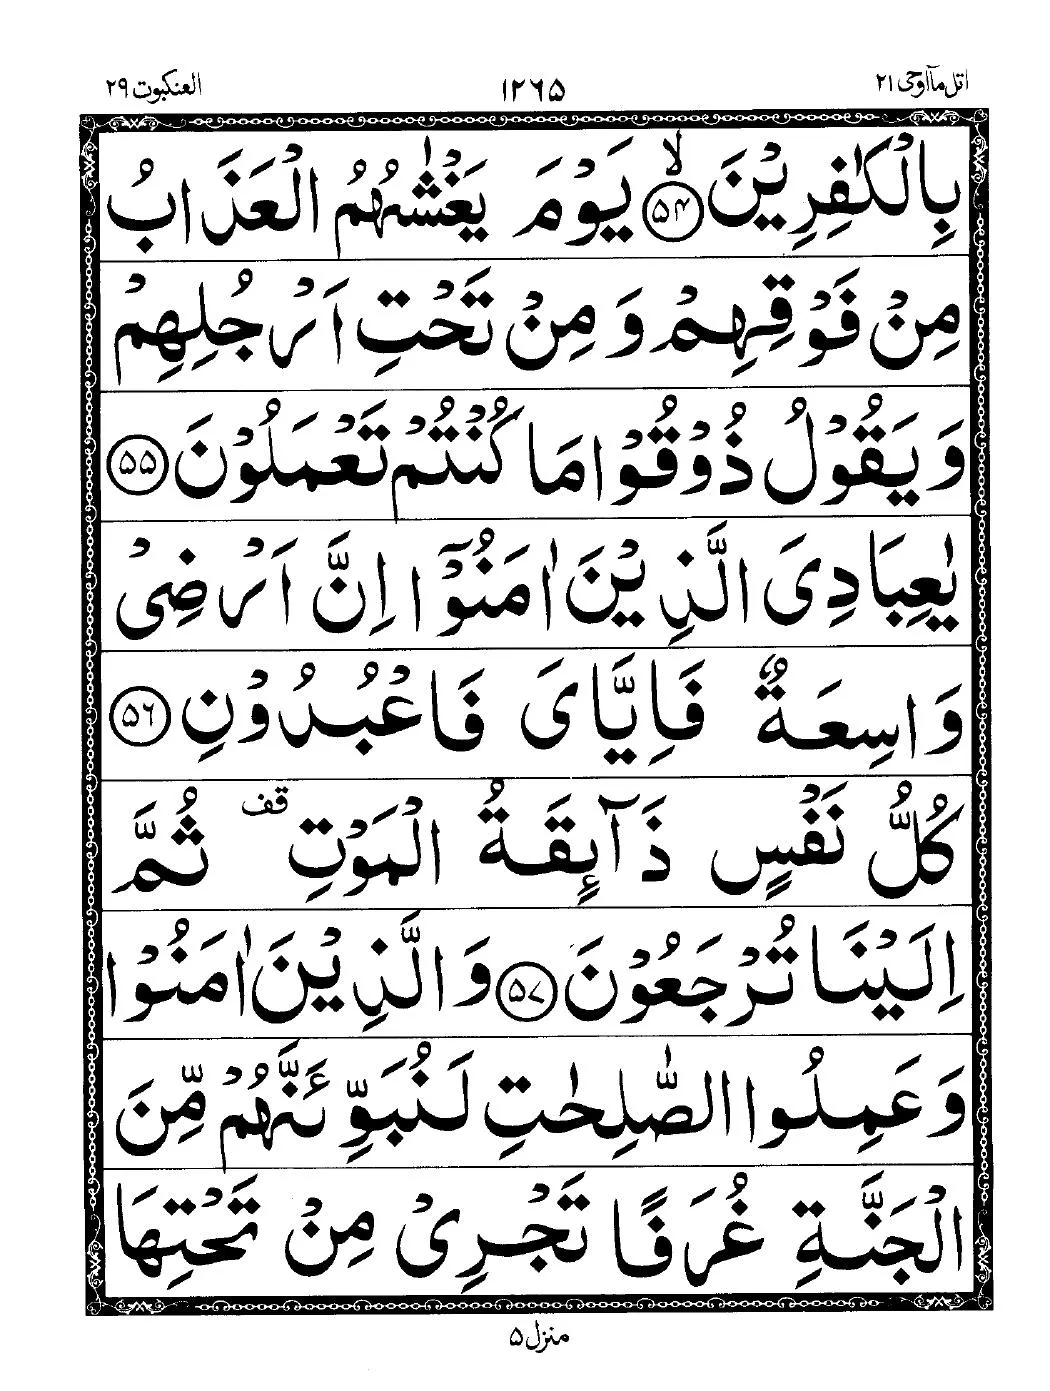 اتل مآ اوحی ۲۱
۱۲۶۵
العنکبوت ۲۹
بِالْكٰفِرِيْنَ ﴿۵۴﴾ ۙ يَوْمَ يَغْشٰىهُمُ الْعَذَابُ
مِنْ فَوْقِهِمْ وَ مِنْ تَحْتِ اَرْجُلِهِمْ
وَ يَقُوْلُ ذُوْقُوْا مَا كُنْتُمْ تَعْمَلُوْنَ ﴿۵۵﴾
يٰعِبَادِىَ الَّذِيْنَ اٰمَنُوْۤا اِنَّ اَرْضِىْ
وَاسِعَةٌ فَاِيَّاىَ فَاعْبُدُوْنِ ﴿۵۶﴾
كُلُّ نَفْسٍ ذَآئِقَةُ الْمَوْتِ قف ثُمَّ
اِلَيْنَا تُرْجَعُوْنَ ﴿۵۷﴾ وَالَّذِيْنَ اٰمَنُوْا
وَ عَمِلُوا الصّٰلِحٰتِ لَنُبَوِّئَنَّهُمْ مِّنَ
الْجَنَّةِ غُرَفًا تَجْرِىْ مِنْ تَحْتِهَا
منزل ۵